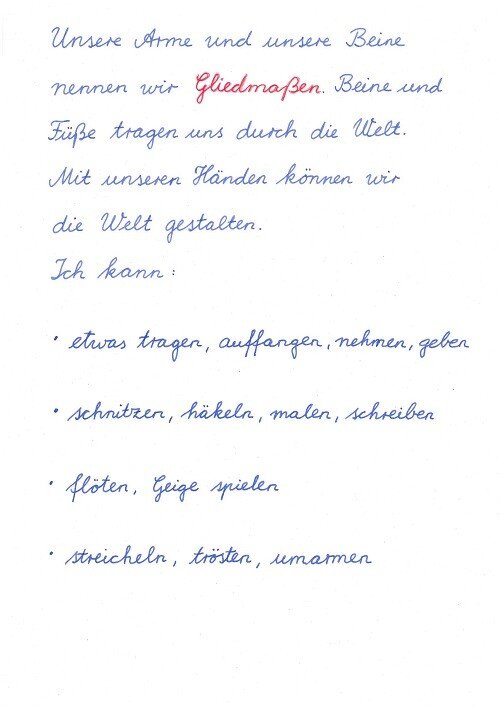 Unsere Arme und unsere Beine
nennen wir Gliedmaßen. Beine und
Füße tragen uns durch die Welt.
Mit unseren Händen können wir
die Welt gestalten.
Ich kann:
• etwas tragen, auffangen, nehmen, geben
• schnitzen, häkeln, malen, schreiben
• flöten, Geige spielen
• streicheln, trösten, umarmen